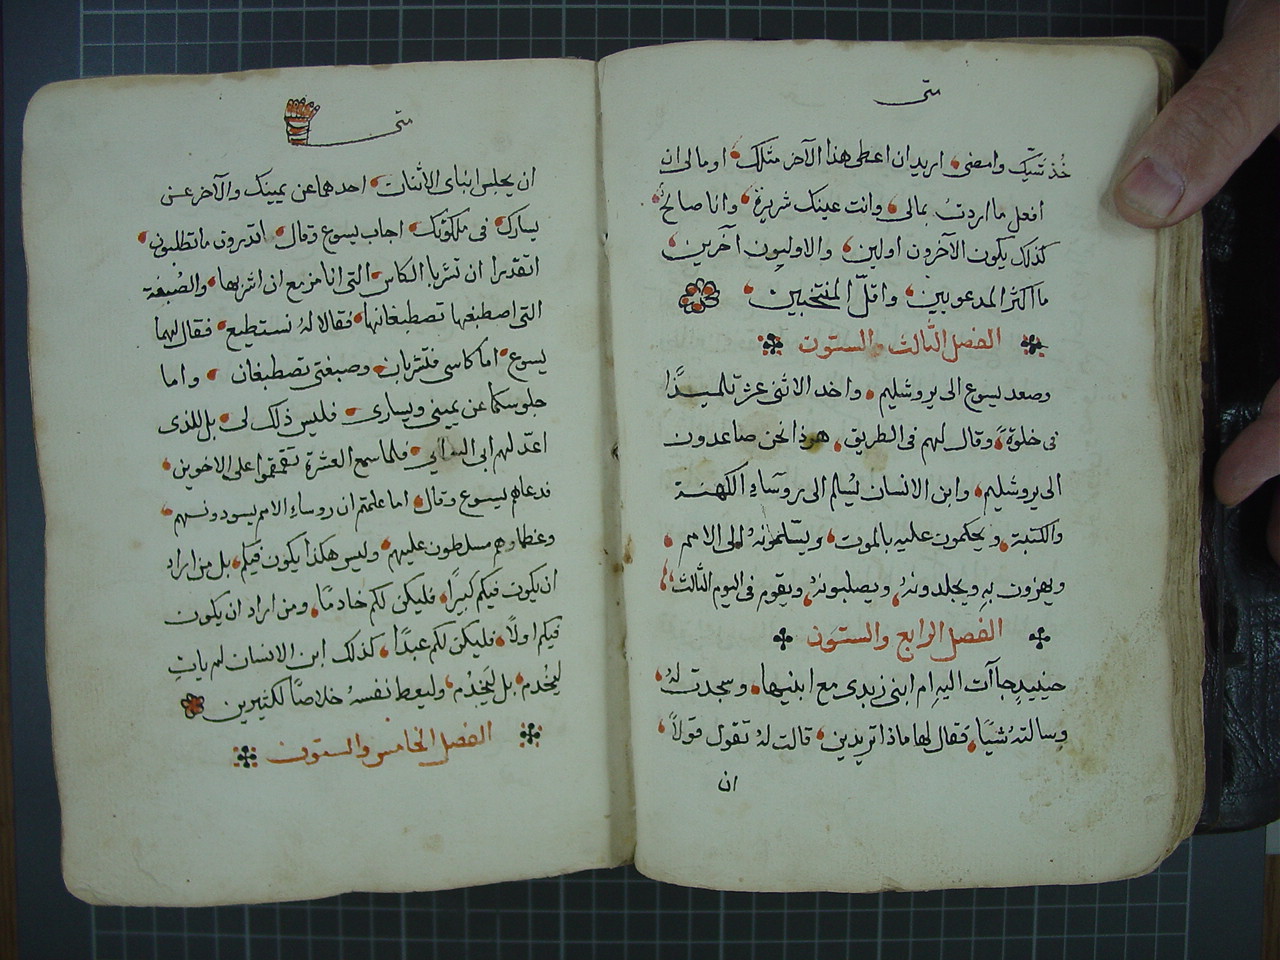 متى
خُذ شيّك وامضى اريد ان اعطى هذا الآخر مثلك او ما لى ان
افعل ما اردتُ بمالى وانت عينك شريرة وانا صالحٌ
كذلك يكون الآخرون اولين والاوليون آخرين
ما اكثر المدعويين واقلّ المنتخبين
الفصل الثالث والستون
وصعد يسوع الى يروشليم واخد الاثنى عشر تلميذًا
فى خلوةً وقال لهم فى الطريق هوذا نحن صاعدون
الى يروشليم وابن الانسان يُسلم الى روسآءِ الكهنة
والكتبة ويحكمون عليه بالموت ويسّلمونهُ الى الامم
ويهزون بهِ ويجلدونهُ ويصلبونهُ ويقوم فى اليوم الثالث
الفصل الرابع والستون
حينيدٍ جاآت اليهِ ام ابنى زبدى مع ابنيها وسجدت لهُ
وسالتهُ شيًا فقال لها ماذا تريدين قالت لهُ تقول قولاً
ان
متى
ان يجلس ابناى الاثنان احدهما عن يمينك والآخر عن
يسارك فى ملكوتك اجاب يسوع وقال اتدرون ما تطلبون
اتقدرا ان تشربا الكاس التى انا مزمع ان اشربها والصُبغة
التى اصطبغها تصطبغانها فقالا لهُ نستطيع فقال لهما
يسوع اما كاسى فتشربان وصبغتى تصطبغان واما
جلوسكما عن يمينى ويسارى فليس ذلك لى بل للذى
اعدّ لهم ابى فلما سمع العشرة تقمقموا على الاخوين
فدعاهم يسوع وقال اما علمتم ان روساءِ الامم يسودونهم
وعظماوهم مسلطون عليهم وليس هكذا يكون فيكم بل من اراد
ان يكون فيكم كبيرًا فليكن لكم خادمًا ومن اراد ان يكون
فيكم اولاً فليكن لكم عبدًا كذلك ابن الانسان لم ياتِ
ليُخدم بل ليَخدُم وليعط نفسهُ خلاصًا لكثيرين
الفصل الخامس والستون